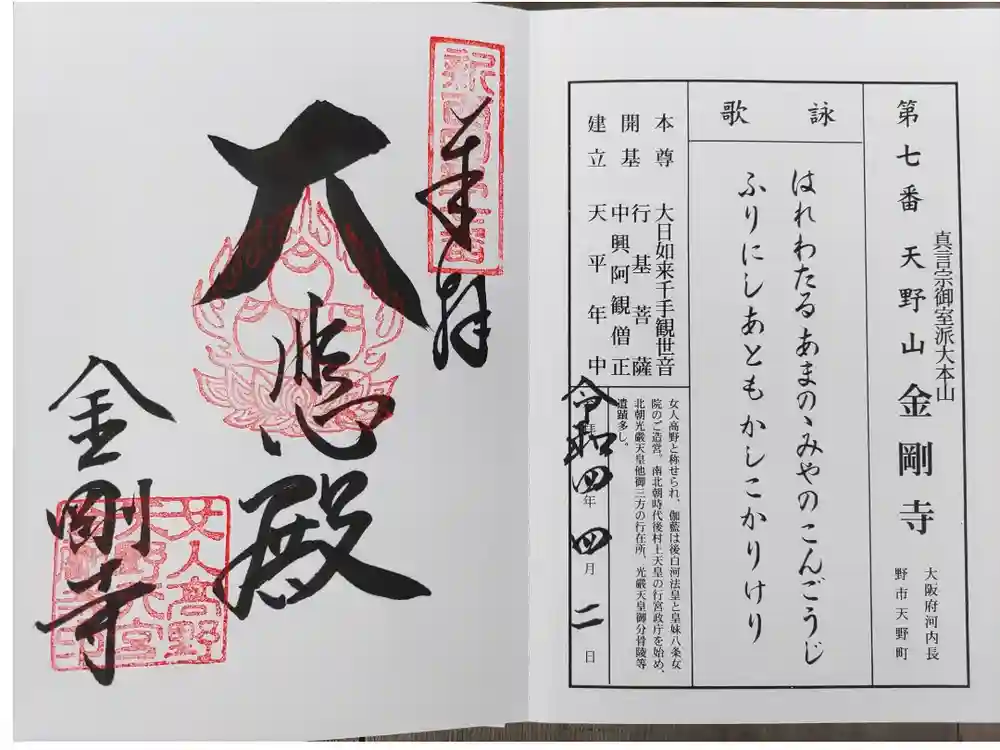 第七番 天野山 金剛寺
真言宗御室派大本山
大阪府河内長
野市天野町
詠歌
はれわたるあまのゝみやのこんごうじ
ふりにしあともかしこかりけり
本尊 大日如来千手観世音
開基 行基菩薩
中興阿観僧正
建立 天平年中
女人高野と称せられ、伽藍は後白河法皇と皇妹八条女
院のご造営。南北朝時代後村上天皇の行宮政庁を始め、
北朝光厳天皇他御三方の行在所、光厳天皇御分骨陵等
遺蹟多し。
令和四年四月二日
奉拝
大悲殿
金剛寺
女人高野